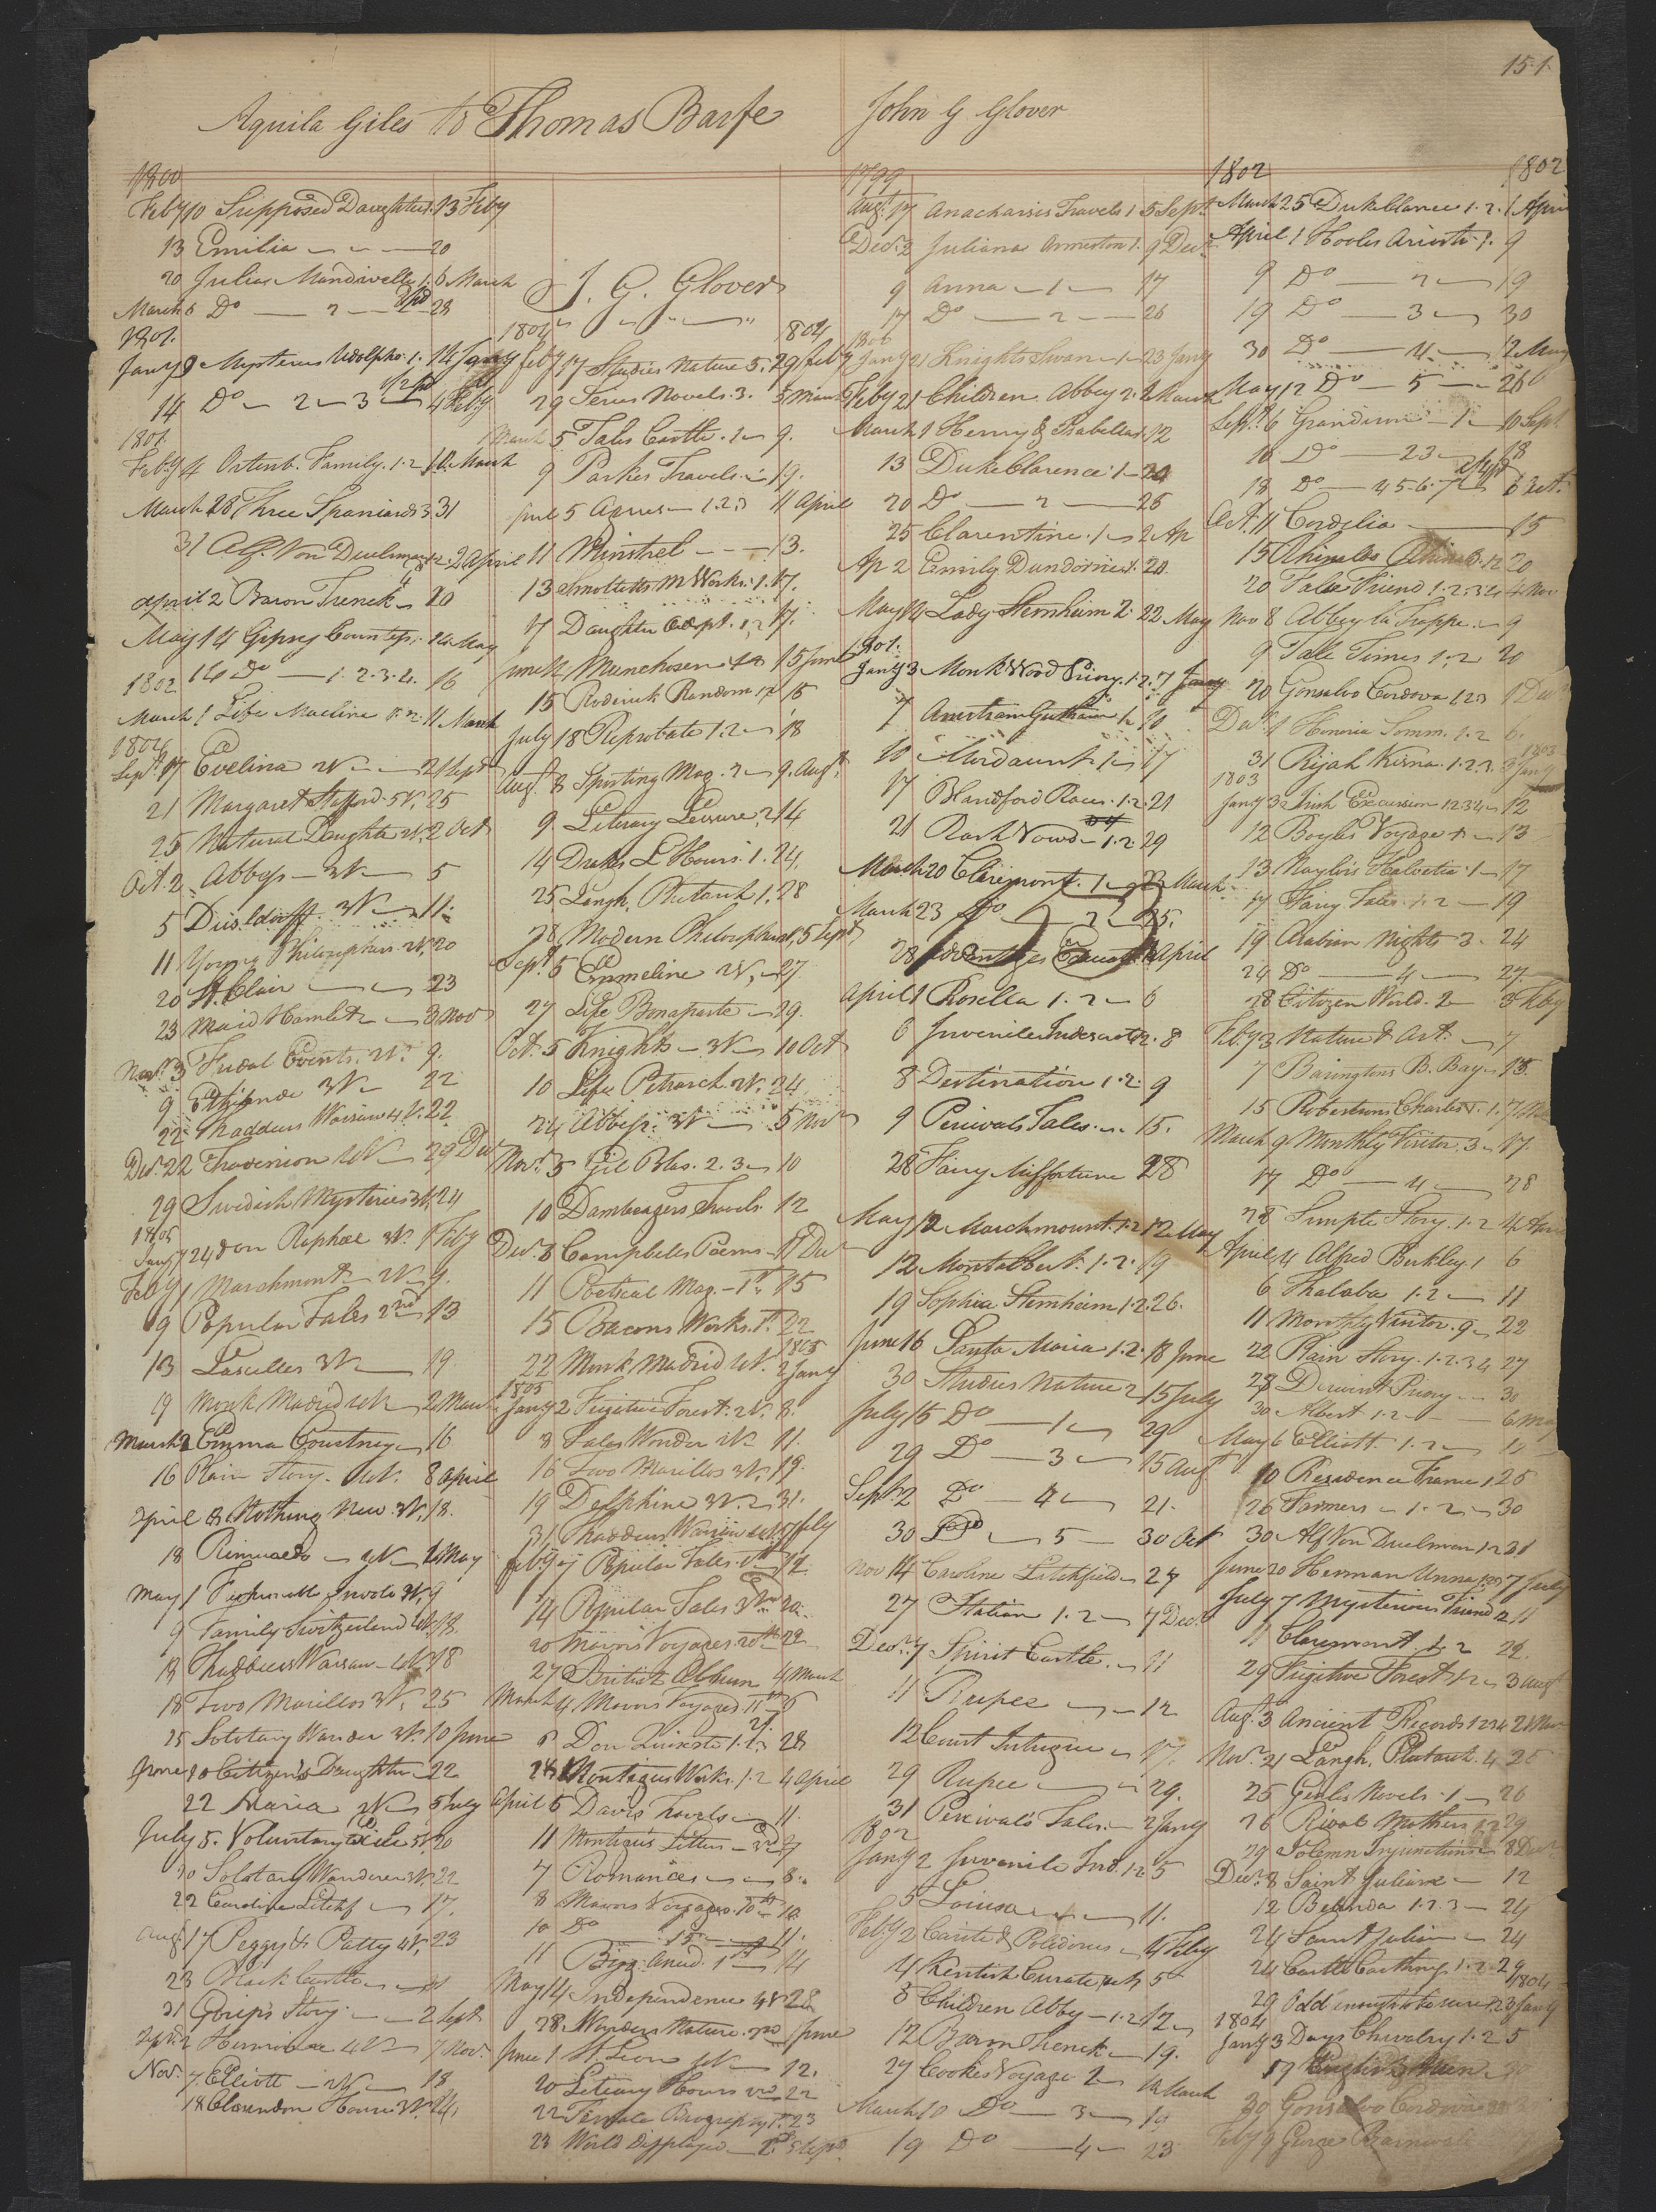 151
Aquila Giles to Thomas Barfe
1800
Feby 10 Supposed Daughter. 13 Feby
13 Emilia 20
20 Julias Mandivelle 1. 6 March
March 6 Do 2 23
1801.
Jany 9 Mysteries Udolpho. 1. 14 Jany
14 Do 2 3 4 Feby
1801
Feby 4 Ortenb. Family. 1.2 March
March 28 Three Spaniards 3 31
31 Alf. Von Duelman 1 2 2 April
April 2 Baron Trenck 20
May 14 Gipsey Countess. 14 May
14 Do 1. 2. 3. 4. 16
1802
March 1 Life Macline 1. 2. 11 March
1804
Sept. 17 Evelina 2V. 21 Sept
21 Margaret Stafford 5V. 25
25 Natural Daughter 2V. 2 Oct
Oct. 2 Abbess 3V 5
5 Dusseldorff. 3V 11.
11 Young Philosopher. 2V. 20
20 St. Clair 23
23 Maid Hamlet 2 3 Nov
Nov. 3 Fudal Events. 2V. 9.
9 Ethelinde 3V 22
22 Thaddeus Warsaw 4V. 22
Dec. 22 Thavenion 29 Dec
29 Swedish Mysteries 3V. 24
1805
Jany 24 Don Raphael 3V. 1 Feby
Feby 1 Marchmont 2V 9.
9 Popular Tales 2nd 13
13 Lascelles 3V 19
19 Monk Madrid 4V 2 March
March 2 Emma Courtney 16
16 Plain Story 4V. 8 April
April 8 Nothing New. 3V. 18.
18 Rinualdo 2V 1 May
May 1 Fashionable Involv 3V. 9
9 Family Switzerland 4V. 18.
18 Thaddeus Warsaw 4V. 18
18 Two Marillos 3V. 25
25 Solotary Wander 3V. 10 June
June 10 Citizens Daughter 22
22 Maria 2V 5 July
July 5. Voluntary Exile 5V. 20
20 Solotary Wanderer 3V. 22
22 Caroline Litchf 17.
Aug. 17 Peggy & Patty 4V. 23
23 Black Castle 31
31 Gosips Story 2 Sept
Sept. 2 Hermione 4V 7 Nov.
Nov. 7 Elliott 2V 18
18 Clarendon House 3V. 24.
J. G. Glover
1804 1804
Feby 17 Studies Nature 5. 29 Feby
29 Series Novels. 3. 5 March
March 5 Tales Castle. 1 9.
9 Parkes Travels 19.
April 5 Agnes 1.2.3 11 April
11 Minstrel 13.
13 Smolletts M Works. 1. 17.
17 Daughter Adopt. 1, 2 17.
June 12 Munchosen 1 2 15 June
15 Roderick Random 1 2 18
July 18 Reprobate 1.2 18
Aug. 8 Sporting Mag. 2 9. Augt.
9 Literary Leisure, 2 14
14 Drakes L Hours. 1. 24.
25 Langh. Plutarch 1. 28
28 Modern Philosophers 1, 5 Sept
Sept. 5 Emmeline 2V, 27.
27 Life Bonaparte 29.
Oct. 5 Knights 3V 10 Oct
10 Life Petrarch 2V. 24.
24 Abbess. 3V 5 Nov
Nov. 5 Gil Blas. 2. 3 10
10 Dambergers Travels. 12
Dec. 8 Campbels Poems 11 Dec
11 Poetical Mag. 1st 15
15 Bacons Works. 1st. 22
1805
22 Monk Madrid 4V. 2 Jany
1805
Jany 2 Fugitive Forest. 2V. 8.
8 Tales Wonder 2V 11.
16 Two Marillos 3V. 19.
19 Delphine 3V. 31.
31 Thaddeus Warsaw 4V. 7 Feby
Feby 7 Popular Tales 1st 14.
14 Popular Tales 3rd 20.
20 Mavors Voyages. 20th 29
27 British Album 4 March
March 4 Mavors Voyages 11th 6
6 Don Quixote 1. 2. 3 28
28 Montagus Works. 1.2 4 April
April 5 Davis Travels 11.
11 Montagus Letters 3rd 7
7 Romances 8.
8 Mavors Voyages. 10th 10.
10 Do 15 11.
11 Biog. Anecd. 1st 14
May 14 Independence 4V 28
28 Wonders Nature. 2nd 1 June
June 1 St Leon 4V 12.
20 Literary Hours 22
22 Female Biography 1st. 23
23 World Displayed
John G Glover
1799
Aug. 17 Anacharsis Travels 1 5 Sept.
Dec. 2 Juliana Ormeston 1. 9 Dec.
9 Anna 1 17
17 Do 2 26
1800
Jany 21 Knights Swan 1 23 Jany
Feby 21 Children Abbey 2. 1 March
March 1 Henry & Isabella. 12
13 Duke Clarence 1 20
20 Do 2 25
25 Clarentine. 1 2 Ap
Ap 2 Emily Dundornie 1. 20.
May 14 Lady Sternheim 2. 22 May
1801.
Jany 3 Monk Wood Priory. 1.2. 7 Jany
7 1 10
10 Mordaunt 1 17
17 Blandford Races. 1.2. 21
21 Rash Vows 1.2. 29
March 20 Claremont. 1 23 March
March 23 Do 2 25.
28 April
April 1 Rosella 1. 2 6
6 Juvenile Indescretn. 2. 8
8 Destination 1.2. 9
9 Percivals Tales 15.
28 Fairy Misfortune 28
May 12 Marchmount. 1.2 12 May
12 Montalbert. 1.2. 19
19 Sophia Sternheim 1.2. 26.
June 16 Santa Maria 1.2. 18 June
30 Studies Nature 2 15 July
July 15 Do 1 29
29 Do 3 15 Aug
Sept. 2 Do 4 21.
30 Do 5 30 Oct
Nov 14 Caroline Litchfield 27
27 Italian 1. 2 7 Dec.
Dec. 7 Spirit Castle. 11
11 Rupee 12
12 Court Intrigue 17.
29 Rupee 29.
31 Percivals Tales. 2 Jany
1802
Jany 2 Juvenile Ind. 1.2 5
5 Louisa 11.
Feby 2 Carite & Polidorus 4 Feby
4 Kentish Curate 5
8 Children Abby 1.2 12
12 Baron Trenck 19.
27 Cookes Voyage 2 10 March
March 10 Do 3 19
19 Do 4 23
1802 1802
March 25 Duke Clarence 1. 2. 1 April
April 1 Hooles Ariosto. 1. 9
9 Do 2 19
19 Do 3 30
30 Do 4 12 May
May 12 Do 5 26
Sept. 6 Grandison 1 10 Sept
10 Do 2 3 18
18 Do 4 5. 6. 7 6 Oct.
Oct. 11 Cordelia 15
15 1 2 20
20 False Friend 1.2.3 4 4 Nov
Nov 8 Abbey la Trappe. 9
9 Tale Times 1.2 20
20 Gonsalvo Cordova 1.2.3 1 Dec
Dec. 1 Honoria Somm. 1.2 6.
31 Rijah Kisna. 1. 2. 3. 3 Jany
1803
1803
Jany 3 Irish Excursion 1 2 3 4 12
12 Boyles Voyage 13
13 Naylors Helvetia. 1 17
17 Fairy Tales. 1. 2 19
19 Arabian Nights 3. 24
24 Do 4 27.
28 Citizen World. 2 3 Feby
Feby 3 Nature & Art. 7
7 Baringtons B. Bay 15.
15 Robertsons Charles V. 1. 7 Mar
March 9 Monthly Visitor. 3 17.
17 Do 4 28
28 Simple Story. 1.2 4 April
April 4 Alfred Berkley. 1 6
6 Thalaba 1.2 11
11 Monthly Visitor. 9 22
22 Plain Story. 1. 2. 3 4 27
28 Derwent Priory 30
30 Albert 1. 2 6 May
May 6 Elliott. 1. 2 10
10 Residence France 1. 26
26 Farmers 1. 2 30
30 Alf Von Duelman 1 2 31
June 20 Herman Unna 7 July
July 7 Mysterious Friend 2 11
11 Claremont. 1. 2 22.
29 Fugitive Forest 1. 2 3 Augt
Aug. 3 Ancient Records 1 2 3 4 21 Nov
Nov. 21 Langh. Plutarch. 4 25
25 Genlis Novels. 1 26
26 Rival Mothers 1.2 29
29 Solemn Injunction 8 Dec
Dec. 8 Saint Julian 12
12 Belinda 1. 2. 3 24
24 Saint Julian 24
24 Castle Caithney 1.2 29
1804
29 Odd enough to be sure 1.2 3 Jany
1804
Jany 3 Days Chivalry 1. 2 5
17
20 Gonsalvo Cordova
Feby 9 George Barnwell